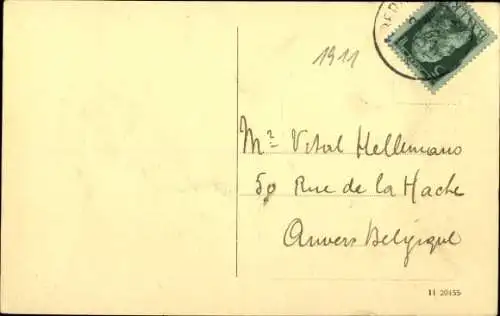 1911
Mr Vital Hellemans
59 Rue de la Hache
Anvers Belgique
11 20455